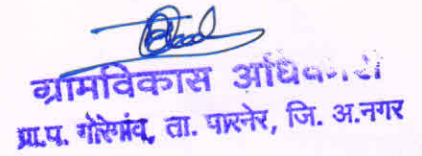 ग्रामविकास अधिकारी
ग्रा.प. गोरेगांव, ता. पारनेर, जि. अ.नगर